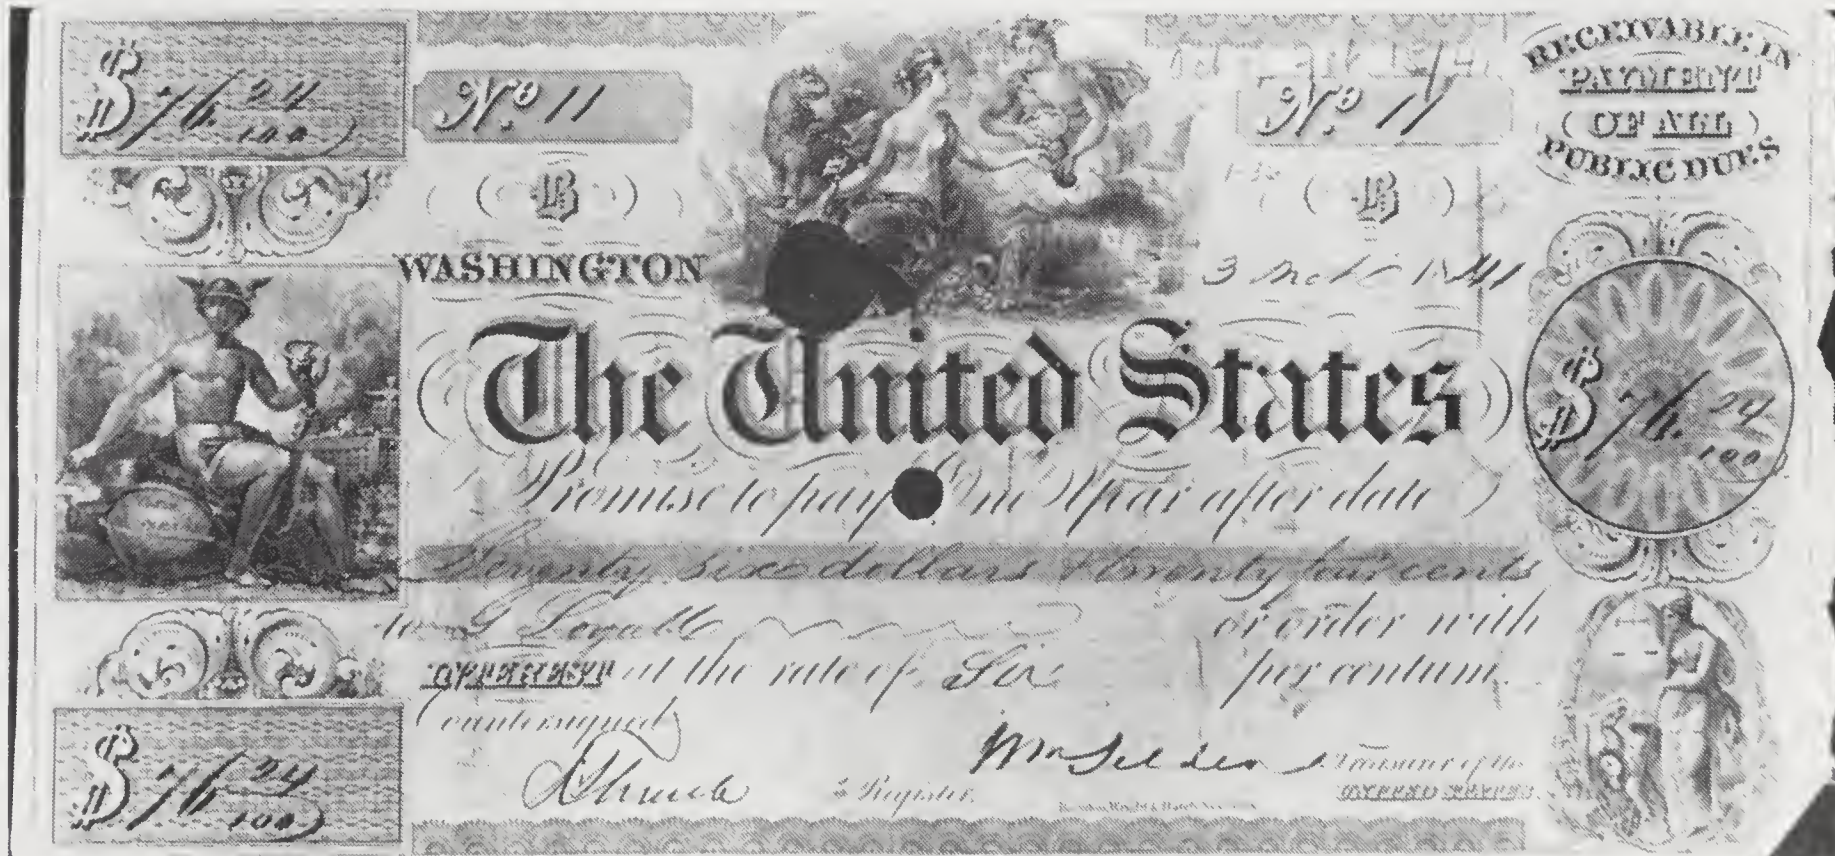 $ 76 24/100
No. 11
No. 11
RECEIVABLE IN
PAYMENT
OF ALL
PUBLIC DUES
B
B
WASHINGTON
3 1841
The United States
Promise to pay One Year after date
$ 76. 24/100
Seventy six dollars & twenty four cents
to G Loyall or order with
INTEREST at the rate of Six per centum.
Countersigned
Wm Selden Treasurer of the
UNITED STATES
Register.
$ 76 24/100